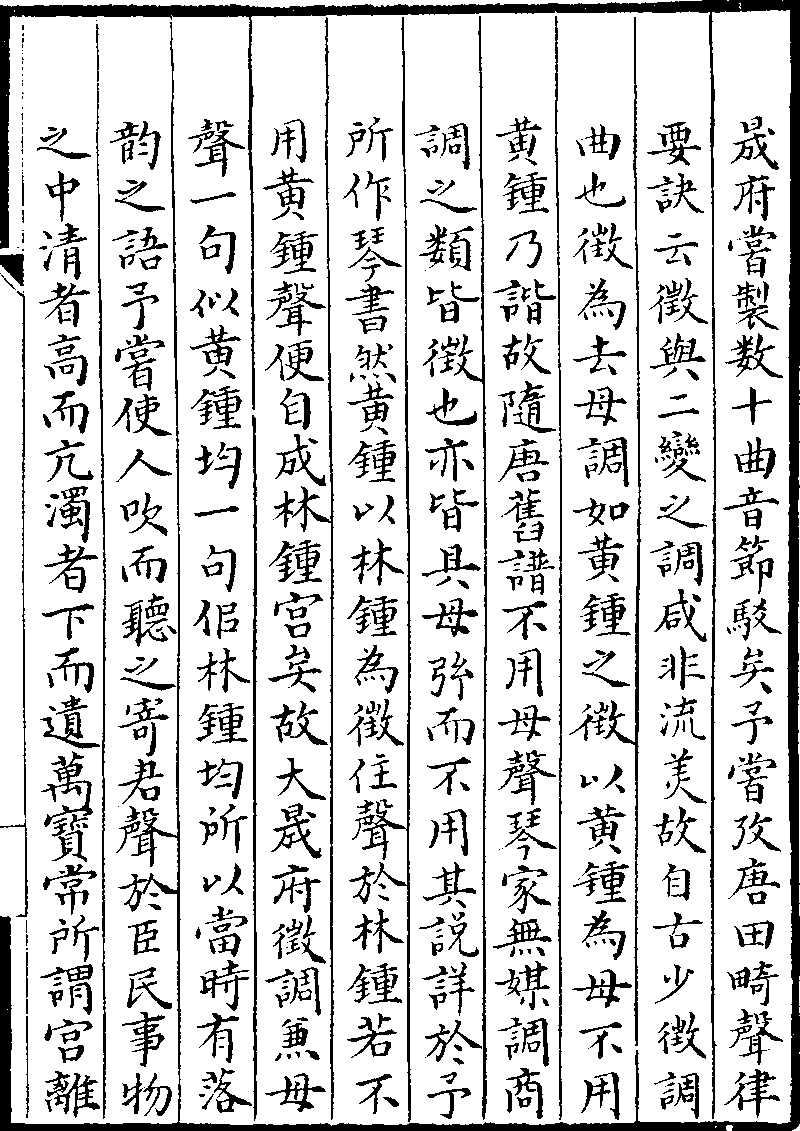 晟府嘗製数十曲音節駁矣予嘗攷唐田畸聲律
要訣云徵與二變之調咸非流美故自古少徵調
曲也徵為去母調如黄鍾之徵以黄鍾為母不用
黄鍾乃諧故隨唐舊譜不用母聲琴家無媒調商
調之類皆徵也亦皆具母弦而不用其説詳於予
所作琴書然黄鍾以林鍾為徵住聲於林鍾若不
用黄鍾聲便自成林鍾宮矣故大晟府徵調兼母
聲一句似黄鍾均一句佀林鍾均所以當時有落
韵之語予嘗使人吹而聽之寄君聲於臣民事物
之中清者高而亢濁者下而遺萬寳常所謂宮離